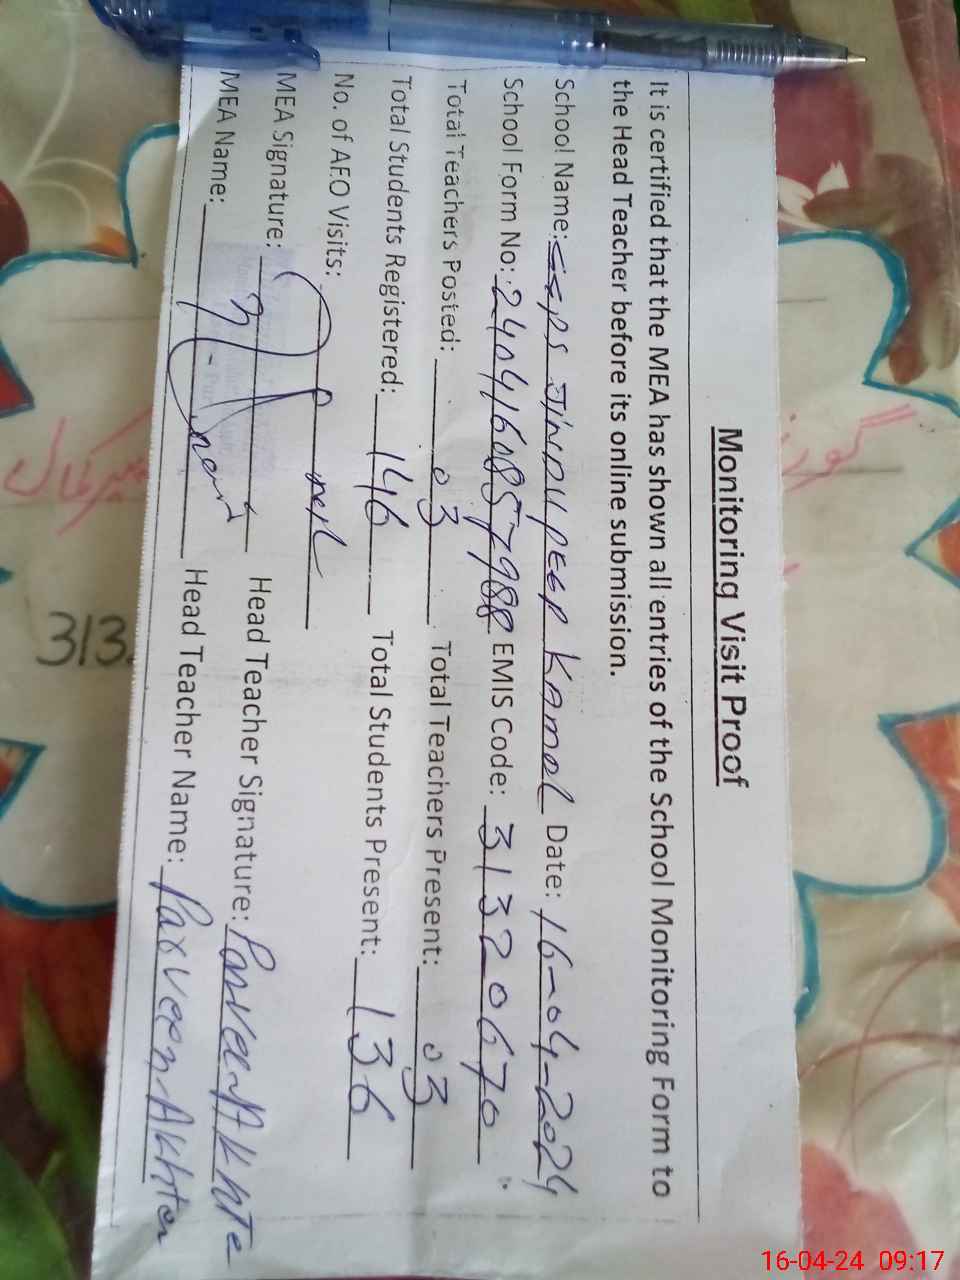 Monitoring Visit Proof
It is certified that the MEA has shown all entries of the School Monitoring Form to
the Head Teacher before its online submission.
School Name: GGPS Jindupeer Kamal Date: 16-04-2024
School Form No: 2404160857988 EMIS Code: 31320670
Total Teachers Posted: 03 Total Teachers Present: 03
Total Students Registered: 146 Total Students Present: 136
No. of AEO Visits:
MEA Signature: Head Teacher Signature: Parveen Akhte
MEA Name: Head Teacher Name: Parveen Akhtar
313
16-04-24 09:17